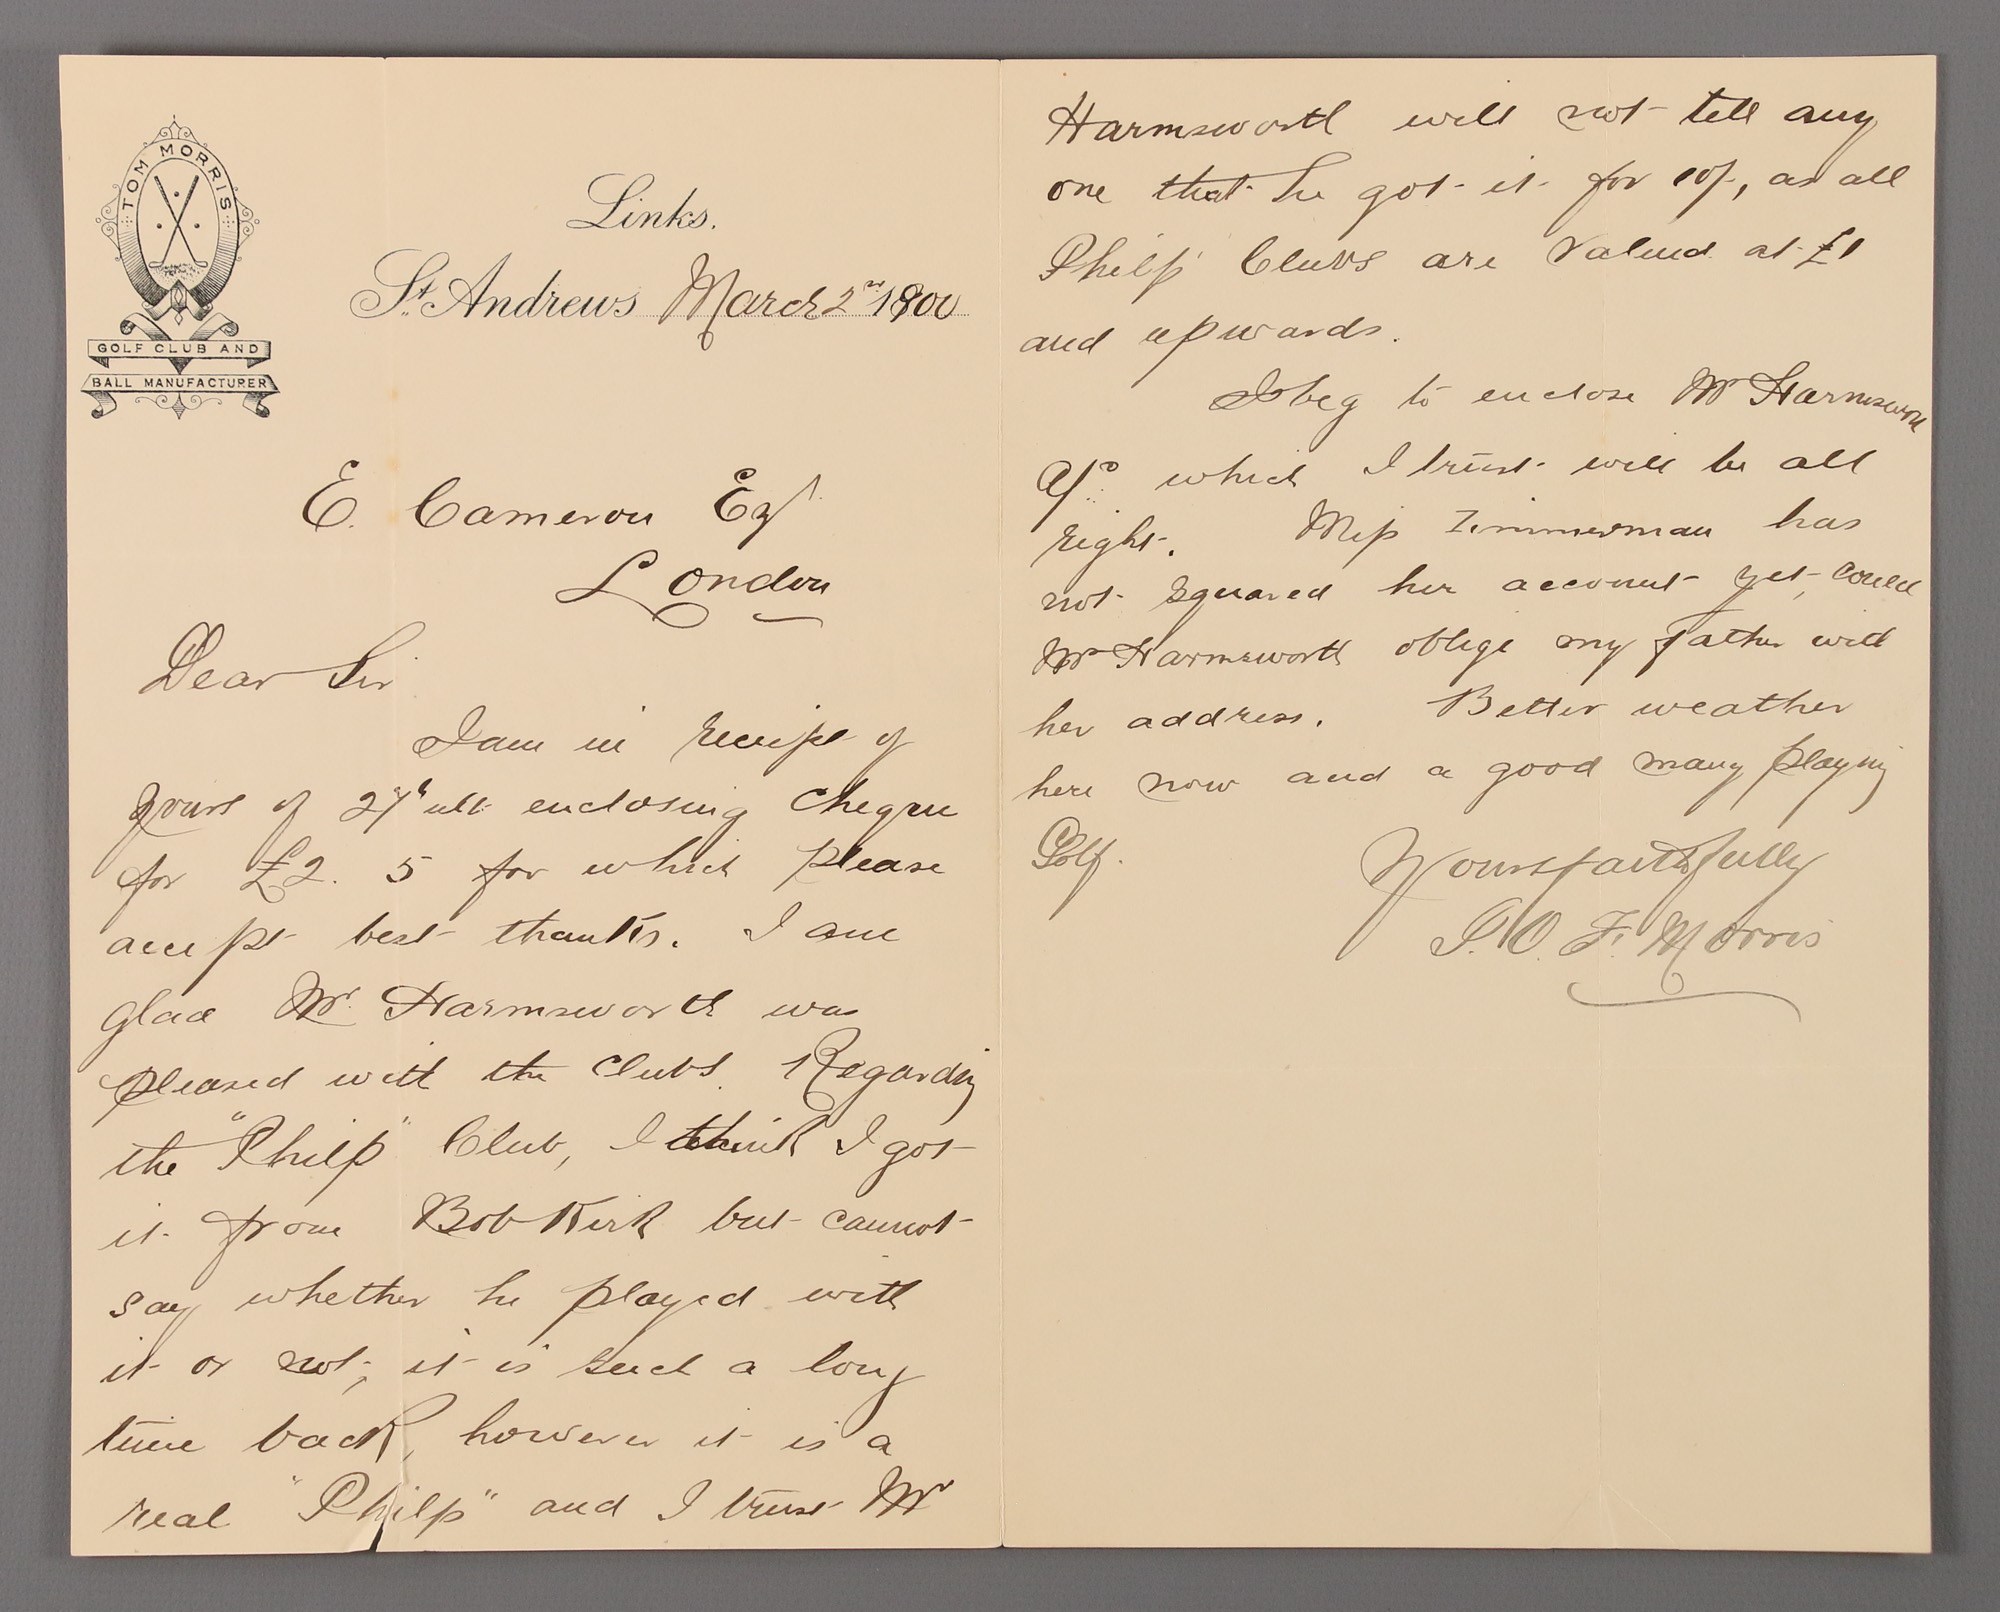 TOM MORRIS
GOLF CLUB AND
BALL MANUFACTURER
Links.
St. Andrews March 2nd 1900
E. Cameron Esqr
London
Dear Sir
I am in receipt of
yours of 27th ult enclosing cheque
for £2. 5 for which please
accept best thanks. I am
glad Mr. Harmsworth was
pleased with the clubs. Regarding
the "Philp" Club, I think I got
it from Bob Kirk but cannot
say whether he played with
it or not, it is such a long
time back, however it is a
real "Philp" and I trust Mr
Harmsworth will not tell any
one that he got it for 10/-, as all
Philp Clubs are valued at £1
and upwards.
I beg to enclose Mr Harmsworth
a/c which I trust will be all
right. Miss Zimmerman has
not squared her account yet, could
Mr Harmsworth oblige my father with
her address. Better weather
here now and a good many playing
Golf.
Yours faithfully
J. O. F. Morris